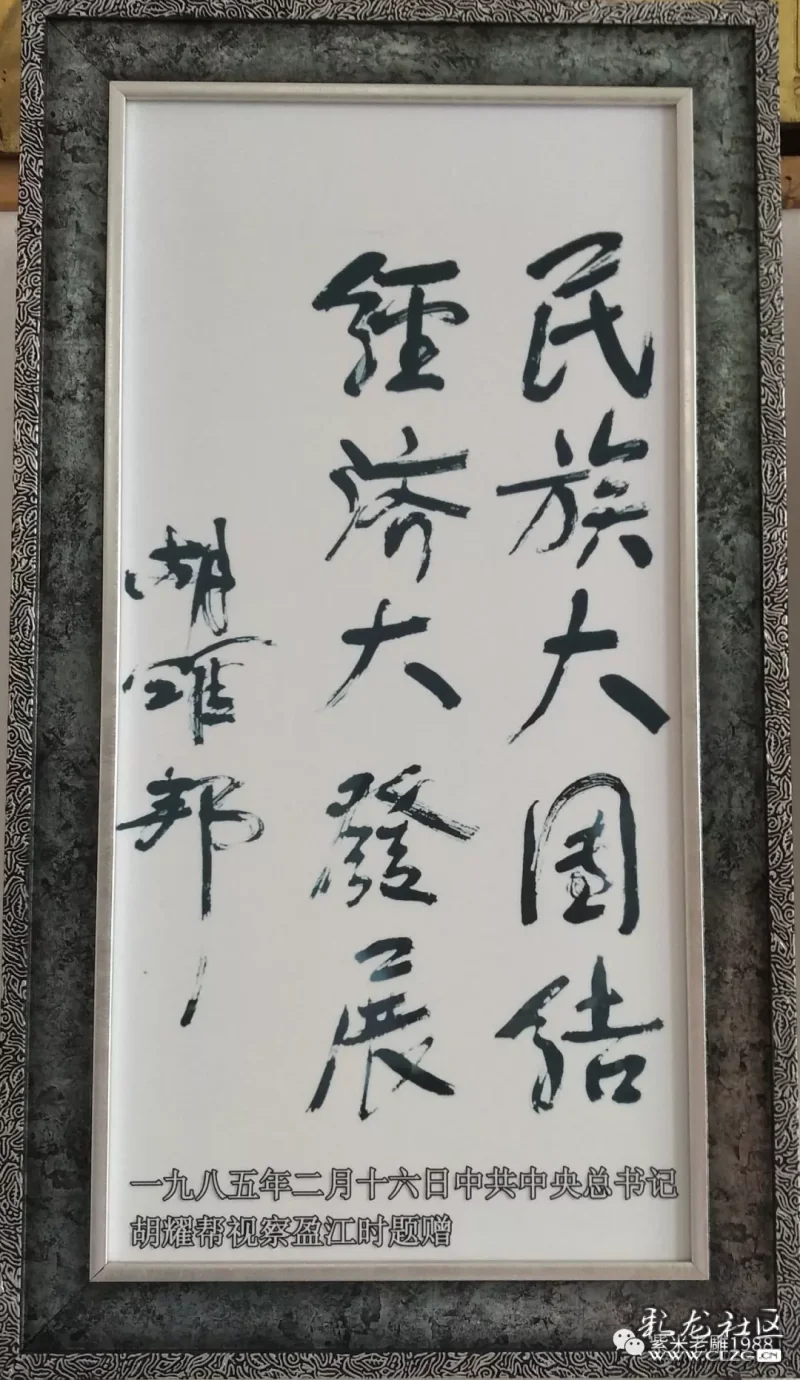 民族大團结
經济大發展
胡耀邦
一九八五年二月十六日中共中央总书记
胡耀帮视察盈江时题赠
紫米老雕1988
社区